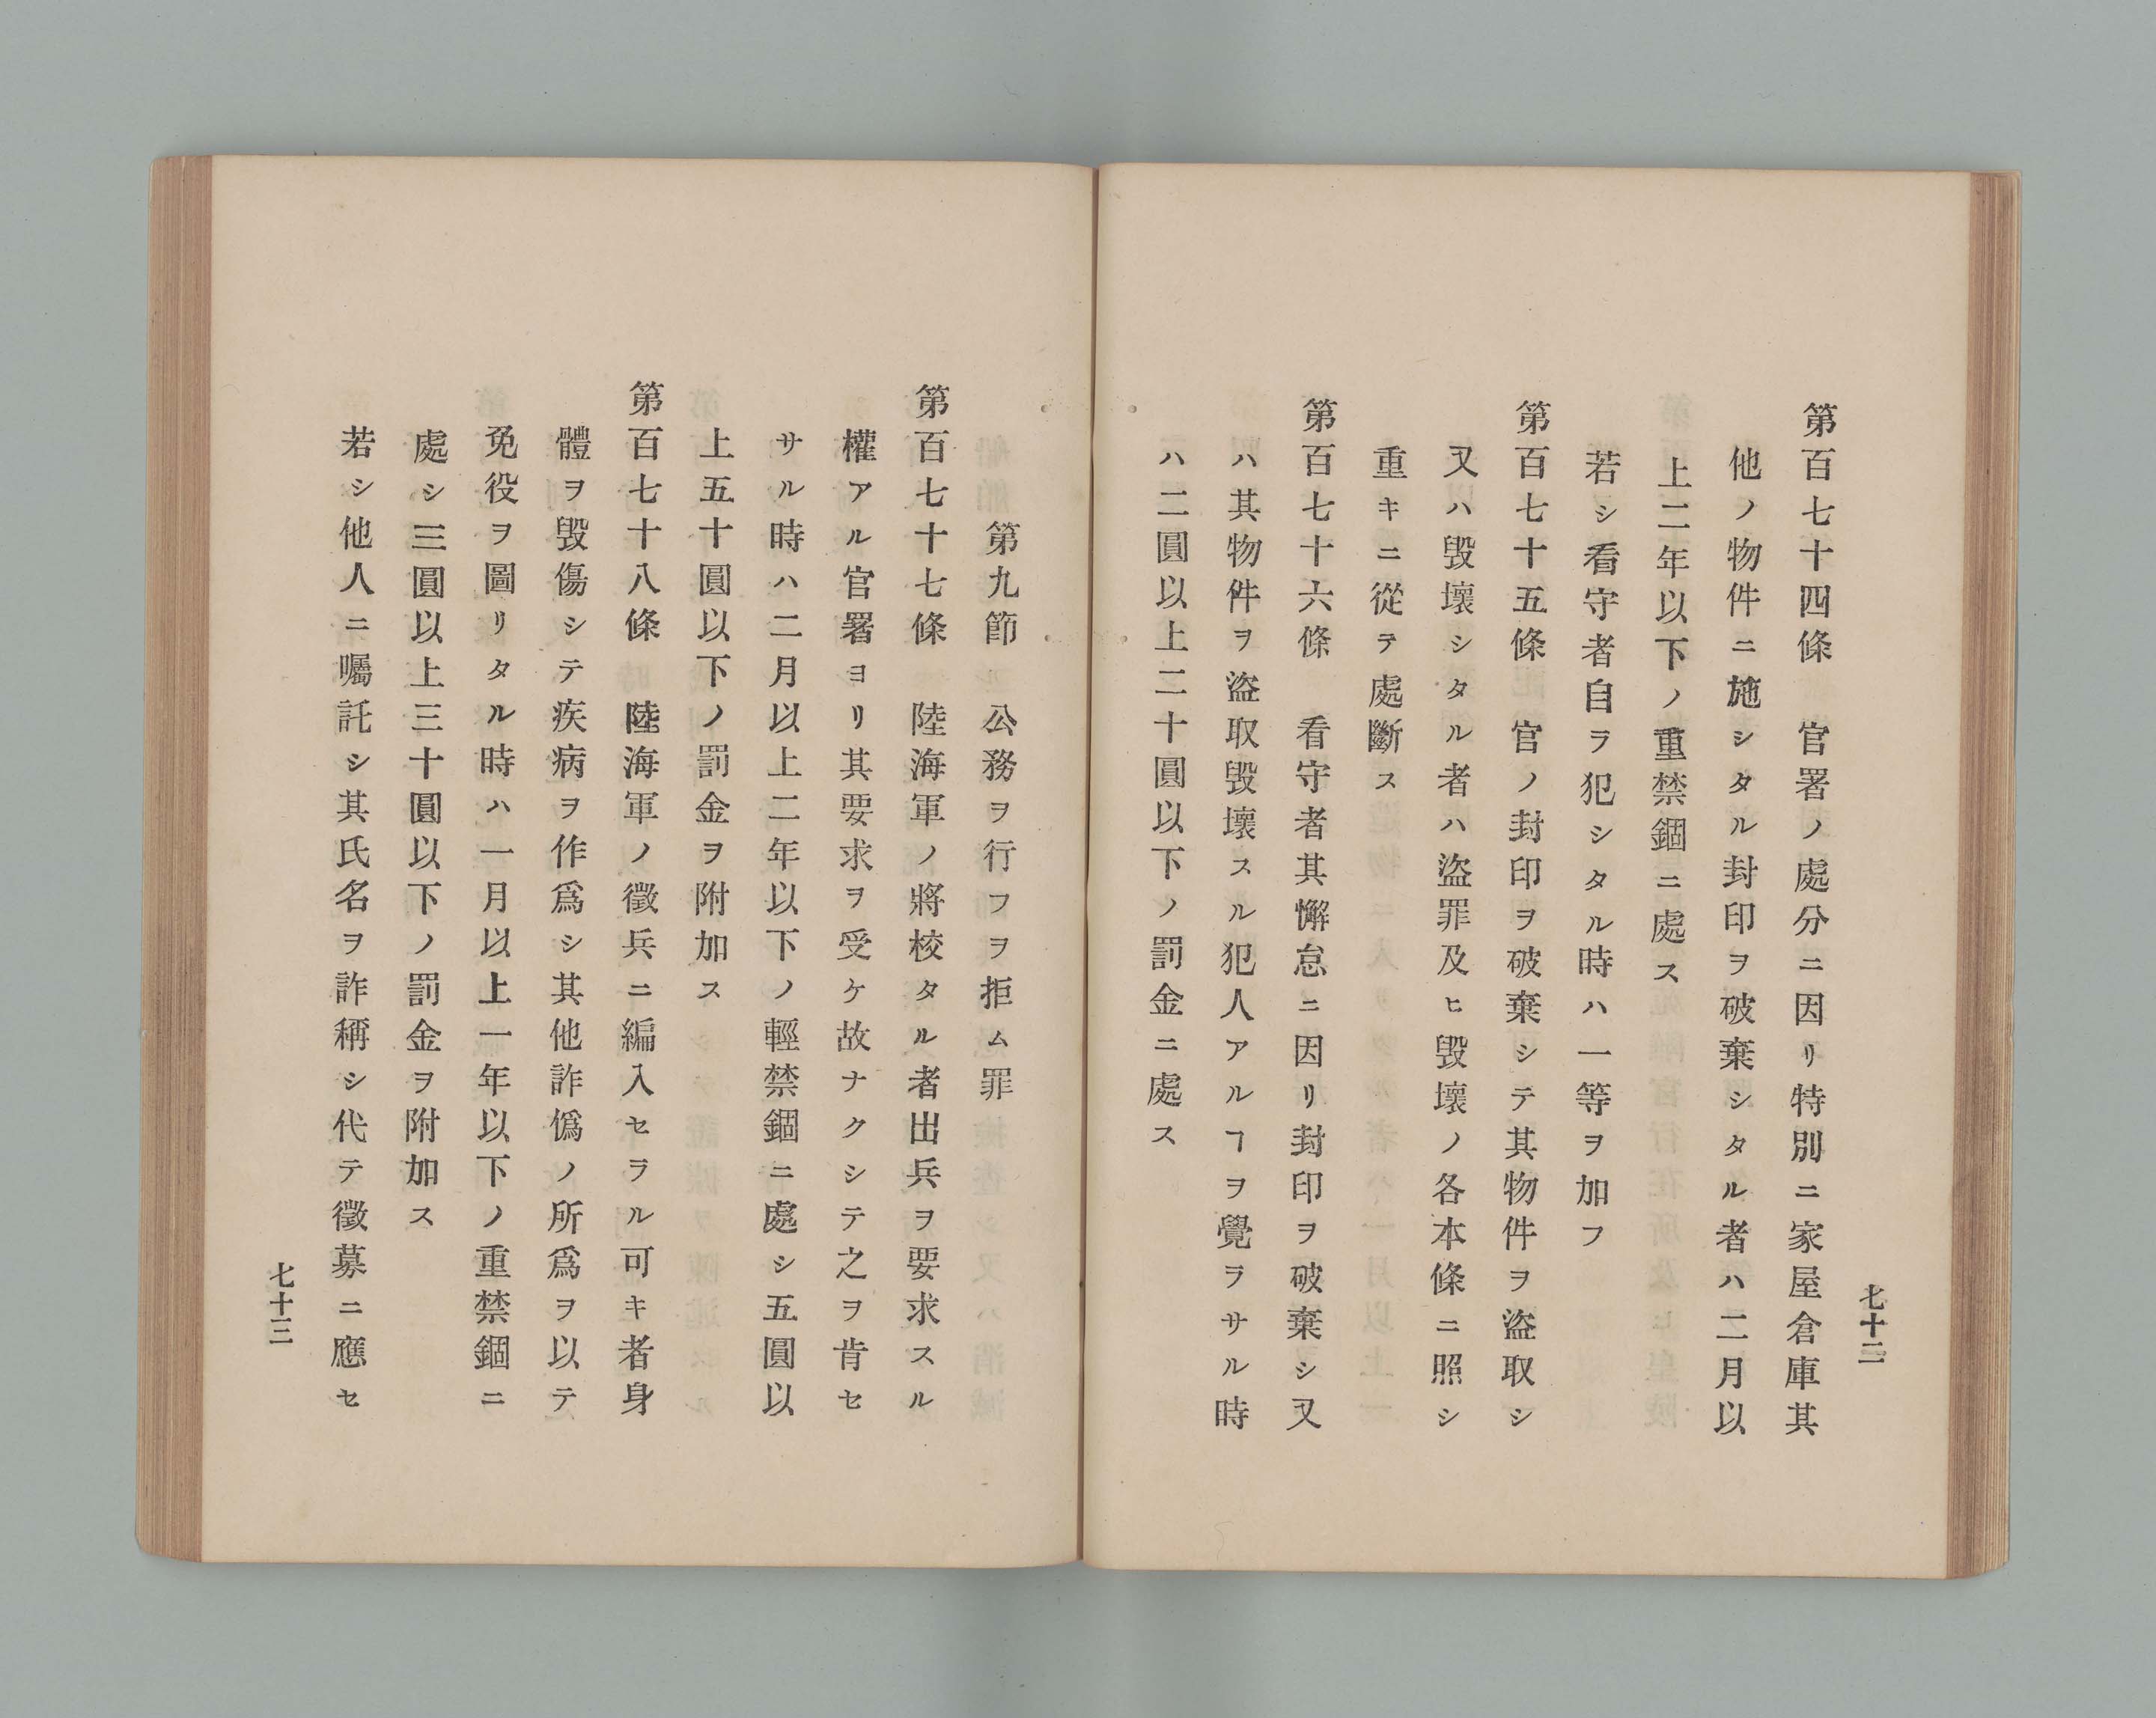 七十二
第百七十四條　官署ノ處分ニ因リ特別ニ家屋倉庫其
他ノ物件ニ施シタル封印ヲ破棄シタル者ハ二月以
上二年以下ノ重禁錮ニ處ス
若シ看守者自ラ犯シタル時ハ一等ヲ加フ
第百七十五條　官ノ封印ヲ破棄シテ其物件ヲ盜取シ
又ハ毀壞シタル者ハ盜罪及ヒ毀壞ノ各本條ニ照シ
重キニ從テ處斷ス
第百七十六條　看守者其懈怠ニ因リ封印ヲ破棄シ又
ハ其物件ヲ盜取毀壞スル犯人アルヿヲ覺ラサル時
ハ二圓以上二十圓以下ノ罰金ニ處ス
第九節　公務ヲ行フヲ拒ム罪
第百七十七條　陸海軍ノ將校タル者出兵ヲ要求スル
權アル官署ヨリ其要求ヲ受ケ故ナクシテ之ヲ肯セ
サル時ハ二月以上二年以下ノ輕禁錮ニ處シ五圓以
上五十圓以下ノ罰金ヲ附加ス
第百七十八條　陸海軍ノ徵兵ニ編入セラル可キ者身
體ヲ毀傷シテ疾病ヲ作爲シ其他詐僞ノ所爲ヲ以テ
免役ヲ圖リタル時ハ一月以上一年以下ノ重禁錮ニ
處シ三圓以上三十圓以下ノ罰金ヲ附加ス
若シ他人ニ囑託シ其氏名ヲ詐稱シ代テ徵募ニ應セ
七十三